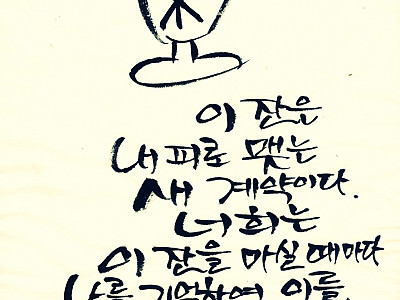 이 잔은
내 피로 맺는
새 계약이다.
너희는
이 잔을 마실 때마다
나를 기억하여 이를